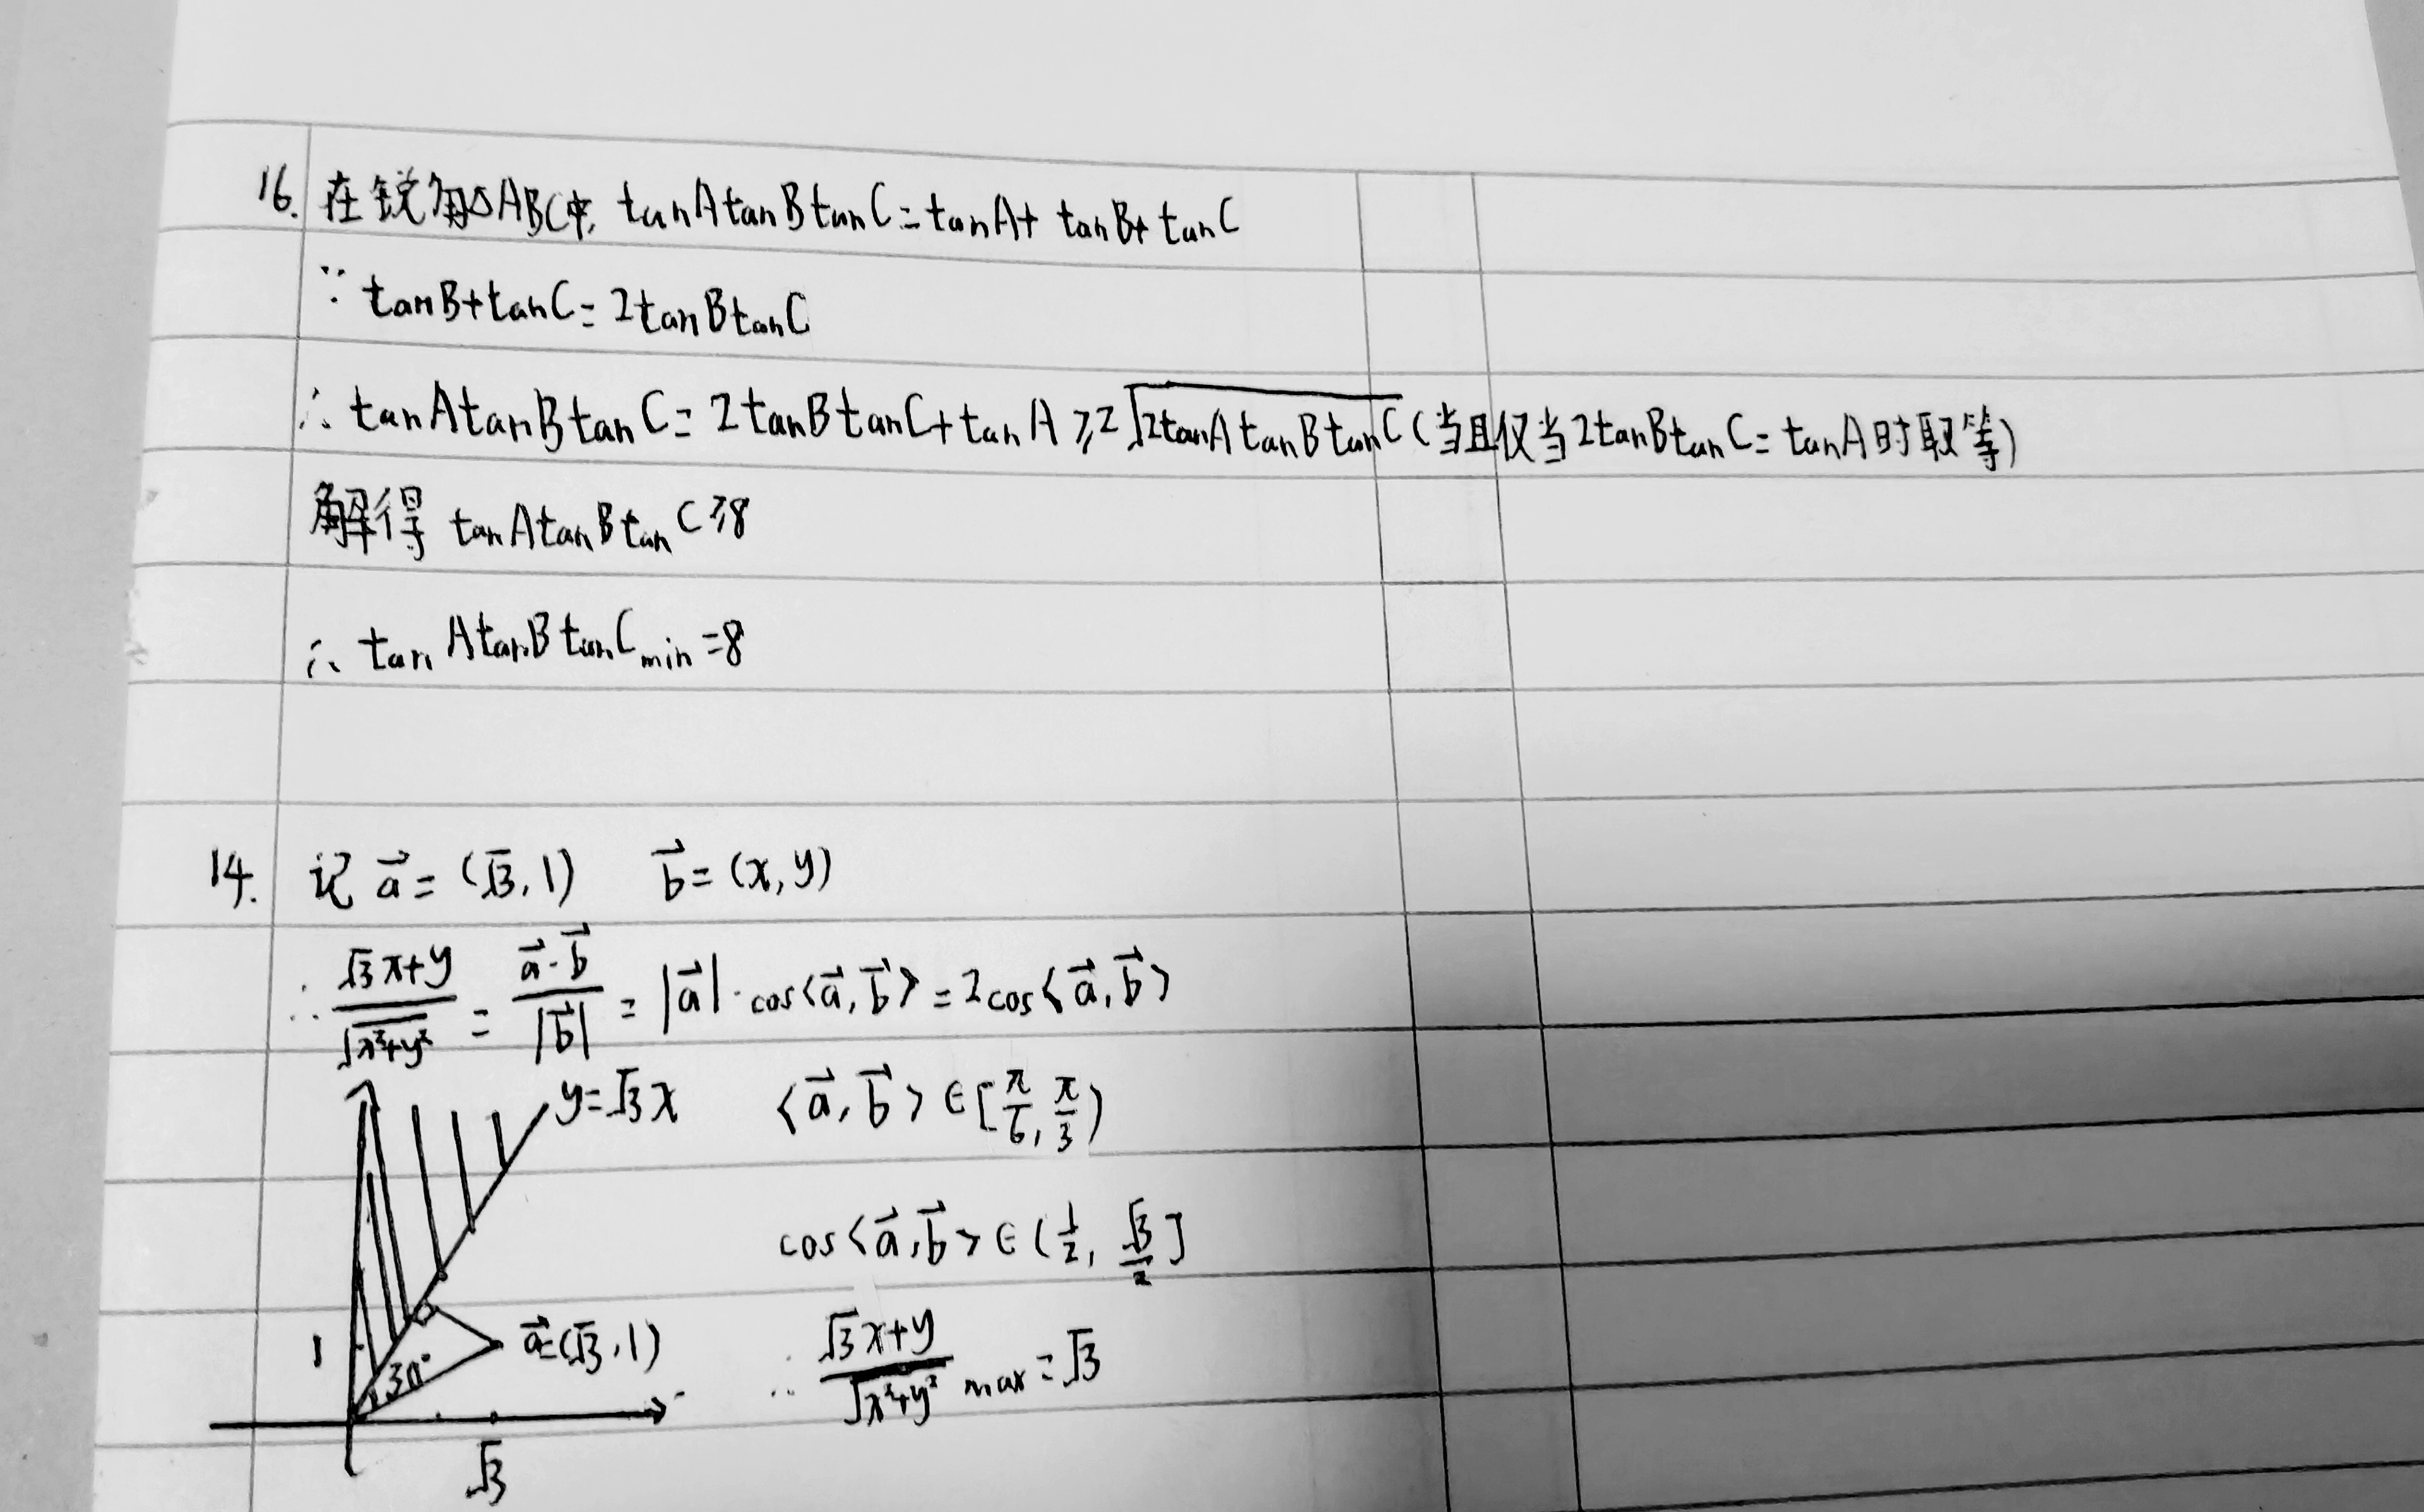 16. 在锐角△ABC中, tanAtanBtanC=tanA+tanB+tanC
∵ tanB+tanC=2tanBtanC
∴ tanAtanBtanC=2tanBtanC+tanA≥2√(2tanAtanBtanC) (当且仅当2tanBtanC=tanA时取等)
解得 tanAtanBtanC≥8
∴ tanAtanBtanCmin=8
14. 记 a⃗=(√3,1) b⃗=(x,y)
∴ (√3x+y)/√(x²+y²) = (a⃗·b⃗)/|b⃗| = |a⃗|·cos<a⃗,b⃗>=2cos<a⃗,b⃗>
y=√3x <a⃗,b⃗>∈[π/6,π/3)
cos<a⃗,b⃗>∈(1/2,√3/2]
1 30° a⃗=(√3,1) ∴ (√3x+y)/√(x²+y²) max=√3
√3